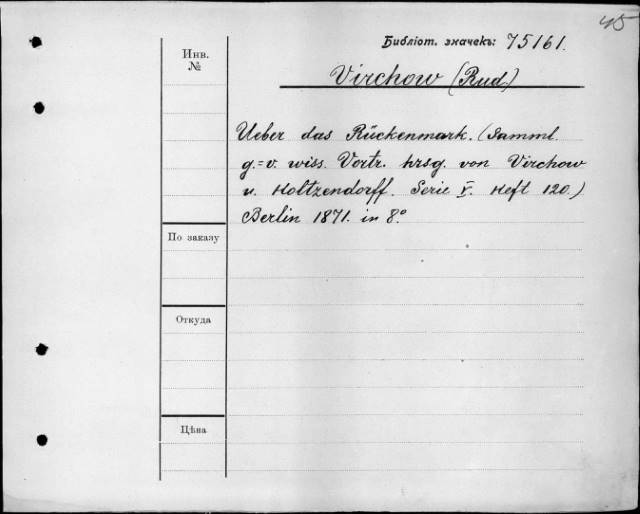 45
Библіот. значекъ: 75161.
Инв.
№
Virchow (Rud.)
Ueber das Rückenmark. (Samml.
g.=v. wiss. Vortr. hrsg. von Virchow
u. Holtzendorff. Serie V. Heft 120.)
Berlin 1871. in 8°
По заказу
Откуда
Цѣна